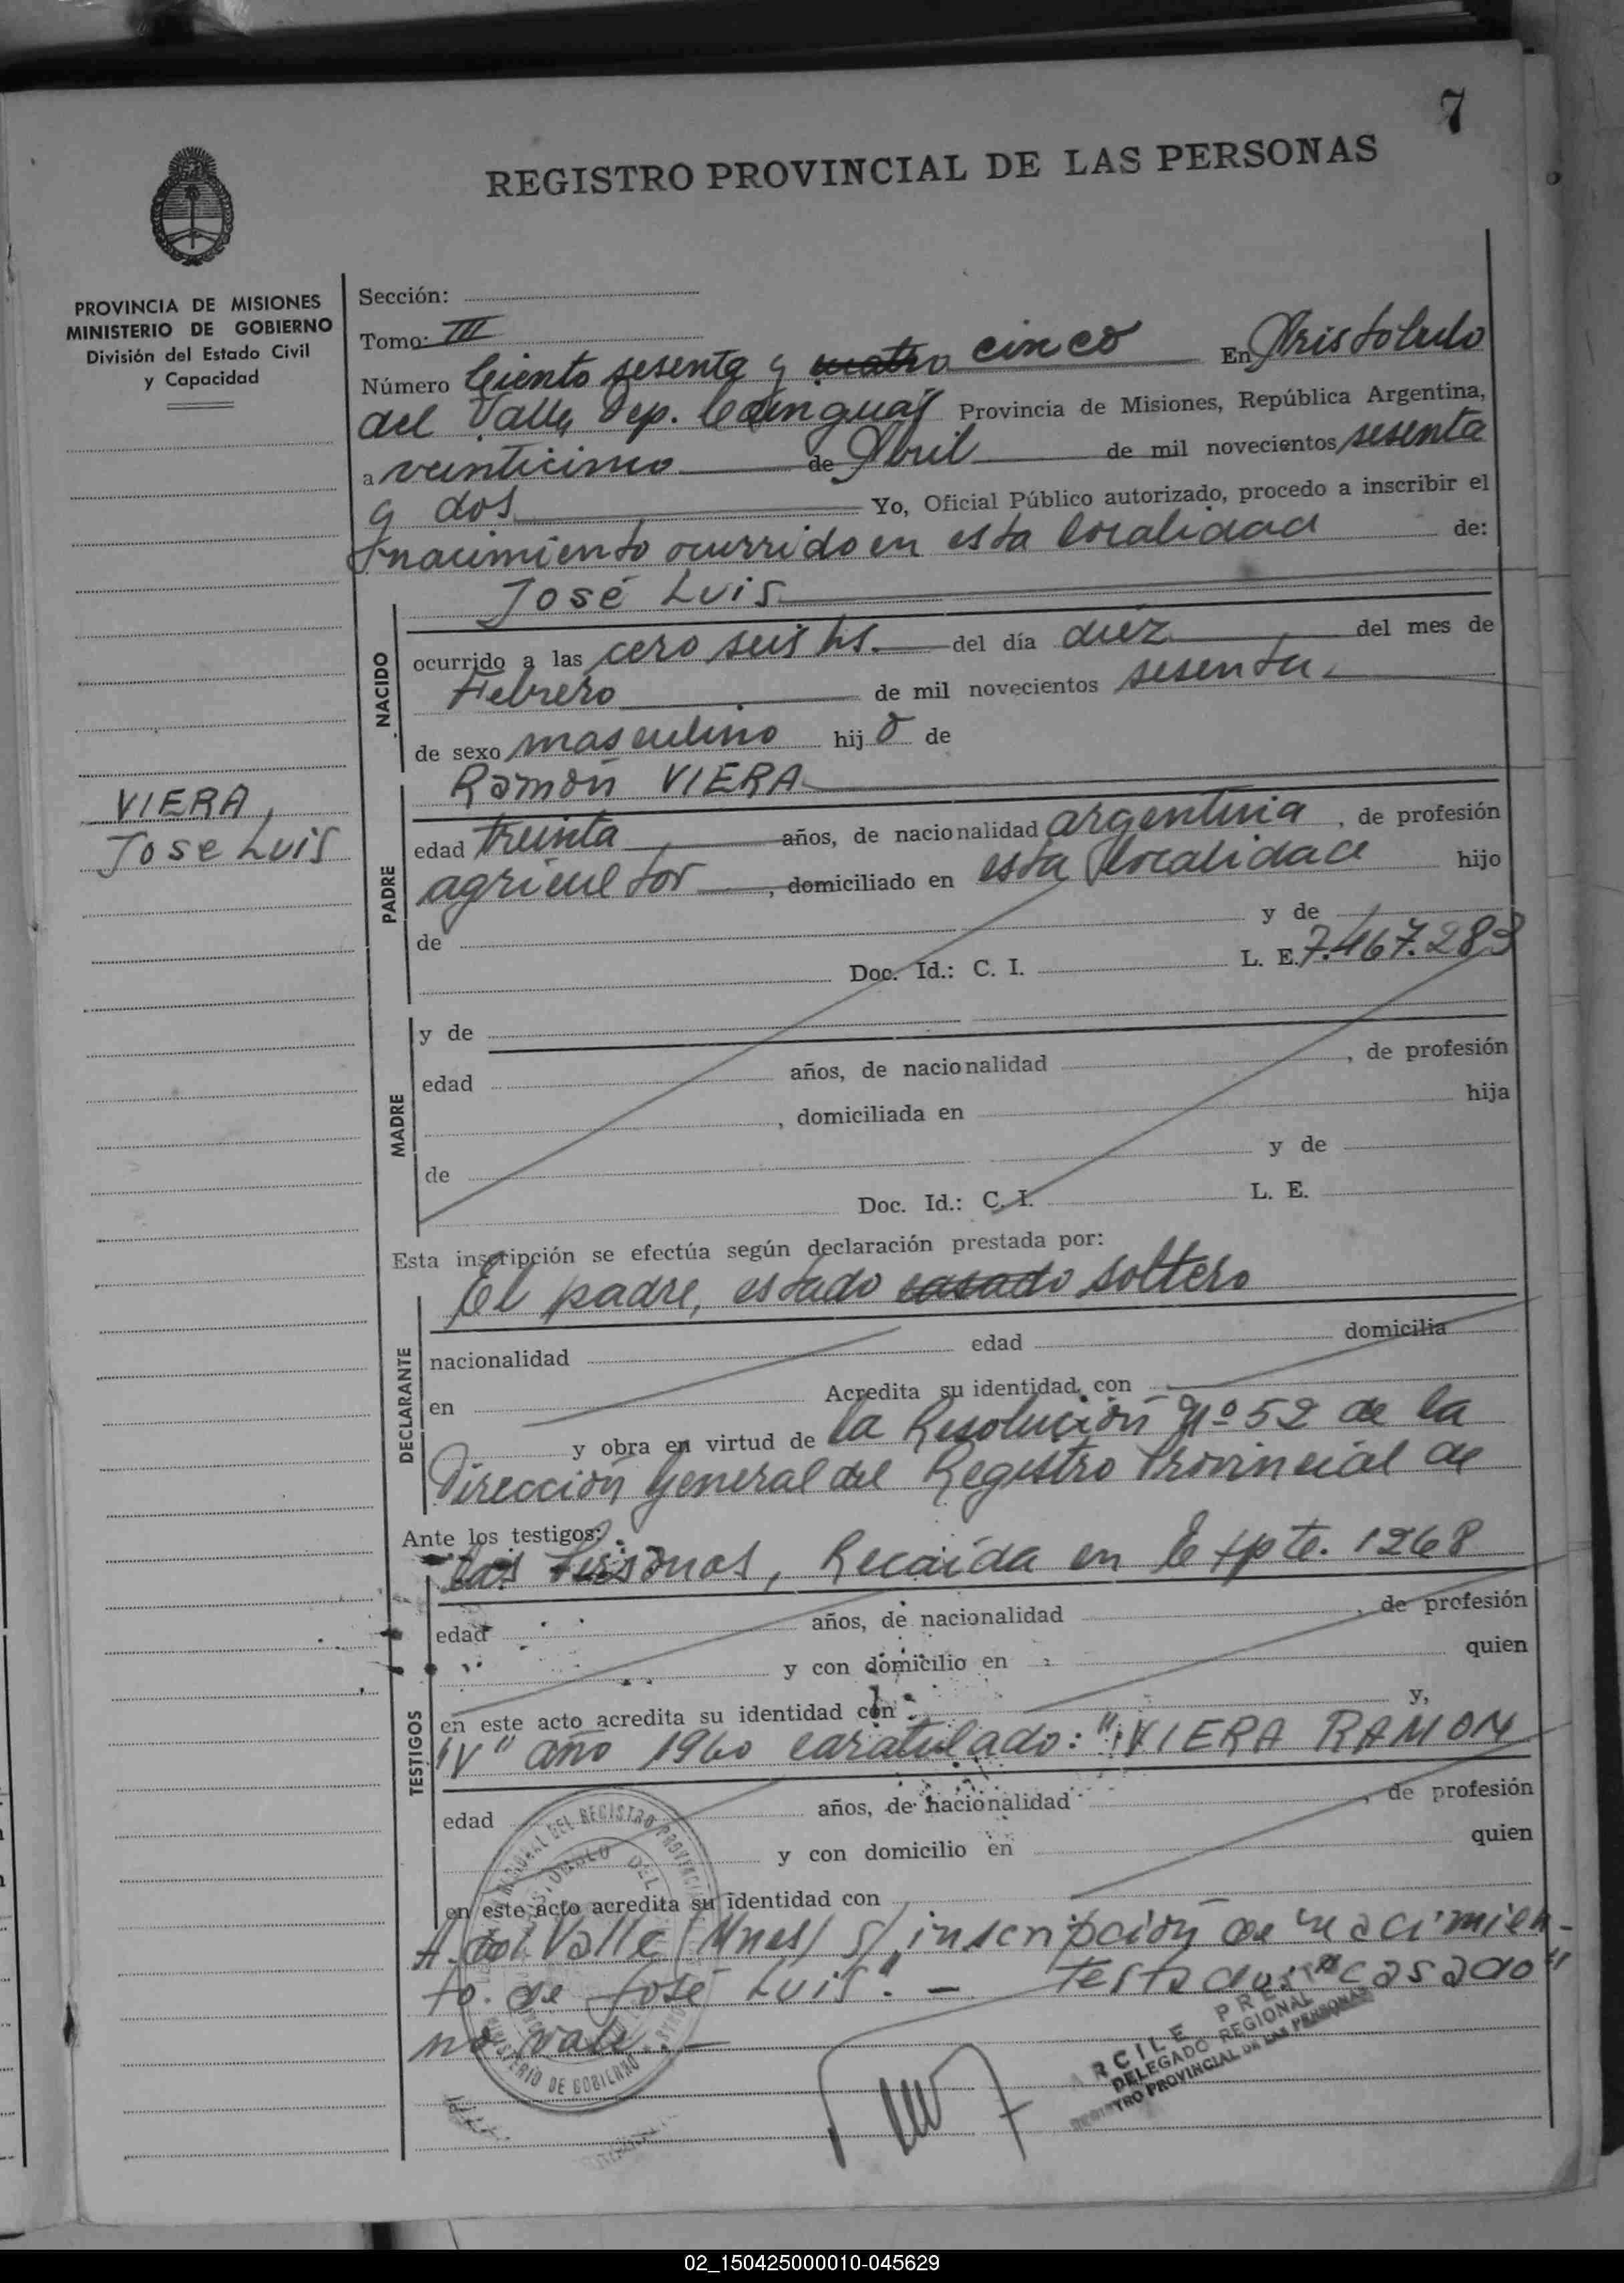 7
REGISTRO PROVINCIAL DE LAS PERSONAS
PROVINCIA DE MISIONES
MINISTERIO DE GOBIERNO
División del Estado Civil
y Capacidad
VIERA,
Jose Luis
Sección:
Tomo: III
Número Ciento sesenta y cuatro cinco En Aristobulo
del Valle, Dep. Cainguás Provincia de Misiones, República Argentina,
a veinticinco de Abril de mil novecientos sesenta
y dos Yo, Oficial Público autorizado, procedo a inscribir el
nacimiento ocurrido en esta localidad de:
NACIDO
José Luis
ocurrido a las cero seis hs. del día diéz del mes de
Febrero de mil novecientos sesenta.
de sexo masculino hijo de
PADRE
Ramón VIERA
edad treinta años, de nacionalidad argentina, de profesión
agricultor, domiciliado en esta localidad hijo
de y de
Doc. Id.: C. I. L. E. 7.467.283
MADRE
y de
edad años, de nacionalidad , de profesión
, domiciliada en hija
de y de
Doc. Id.: C. I. L. E.
Esta inscripción se efectúa según declaración prestada por:
El padre, estado casado soltero
DECLARANTE
nacionalidad edad domicilia
en Acredita su identidad con
y obra en virtud de la Resolución Nº 52 de la
Dirección General del Registro Provincial de
Ante los testigos:
las Personas, Recaída en Expte. 1268
TESTIGOS
edad años, de nacionalidad , de profesión
y con domicilio en quien
en este acto acredita su identidad con y,
"V" año 1960 caratulado: "VIERA RAMON
edad años, de nacionalidad , de profesión
y con domicilio en quien
en este acto acredita su identidad con
A. del Valle (Mnes) s/ inscripción de nacimien-
to. de José Luis". - Testado: "casado"
no vale. -
DEL REGISTRO PROVINCIAL
MINISTERIO DE GOBIERNO
ARCILE PRE
DELEGADO REGIONAL
REGISTRO PROVINCIAL DE LAS PERSONAS
02_150425000010-045629